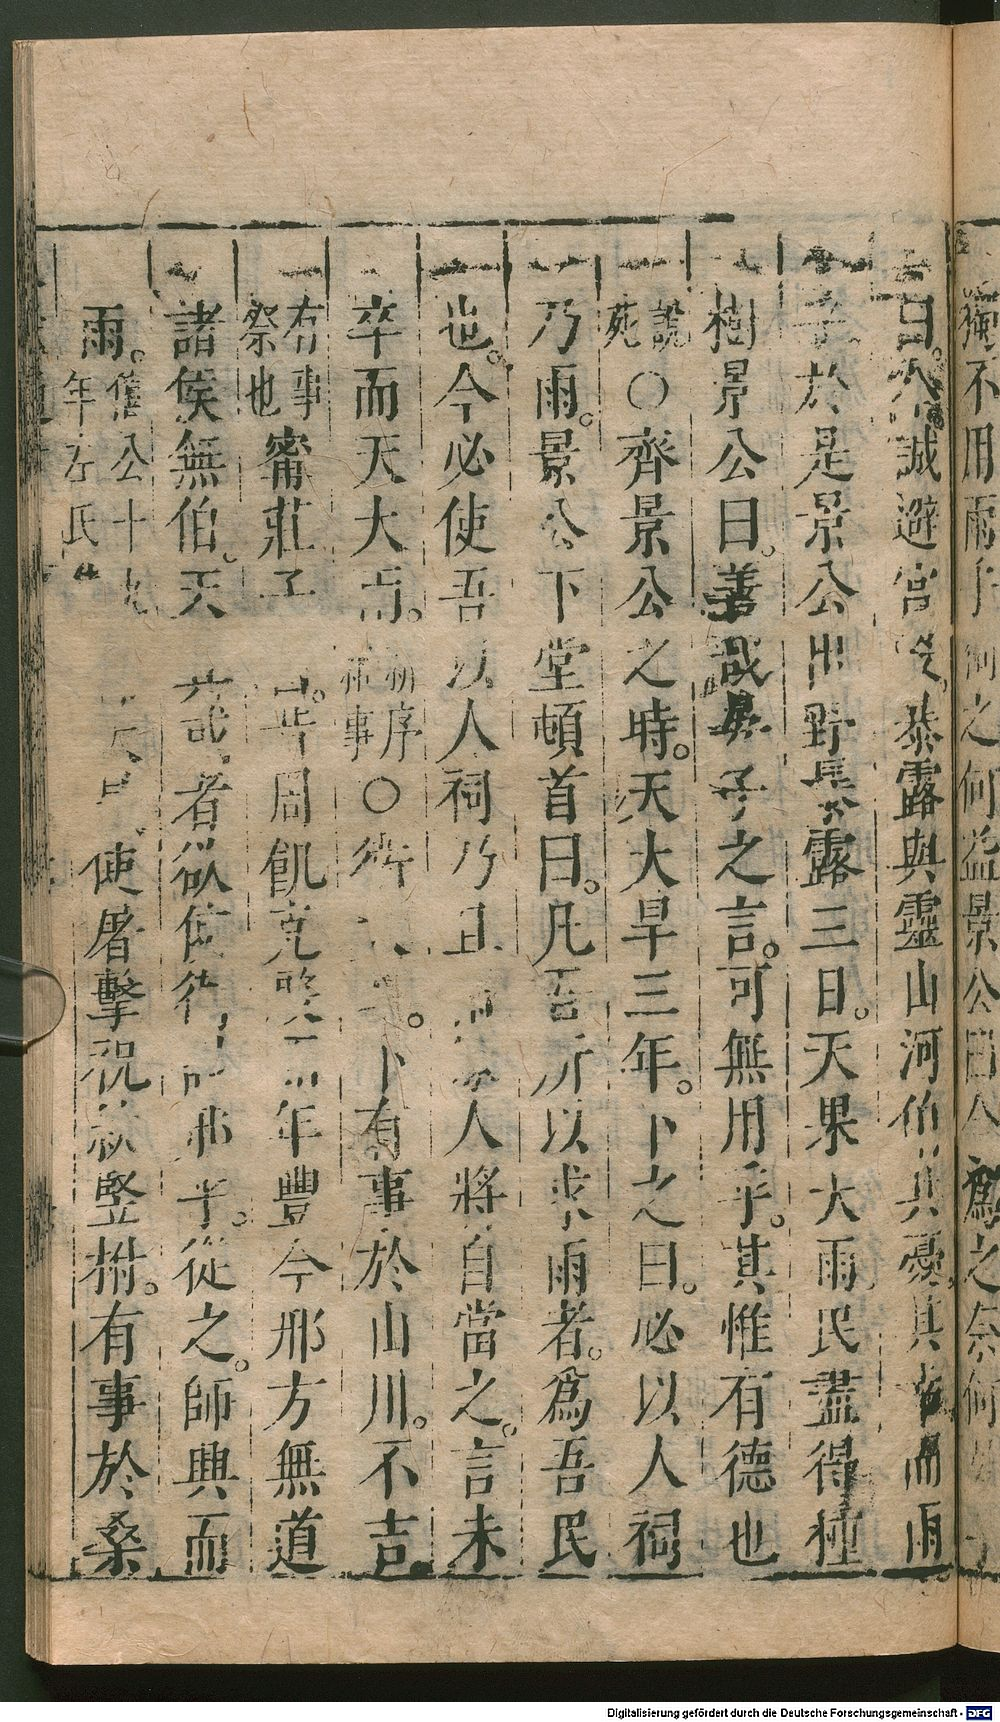 獨不用雨乎祠之何益景公曰今為之奈何
曰君誠避宮殿暴露與靈山河伯共憂其幸而雨
乎於是景公出野暴露三日。天果大雨民盡得種
樹景公曰。善哉晏子之言。可無用乎。其惟有德也
說苑〇齊景公之時。天大旱三年。卜之曰。必以人祠
乃雨。景公下堂頓首曰。凡吾所以求雨者。為吾民
也。今必使吾以人祠乃且雨寡人將自當之。言未
卒而天大雨。新序雜事〇衛大旱。卜有事於山川。不吉
有事祭也甯莊子曰。昔周飢克殷而年豐今邢方無道
諸侯無伯。天其或者欲使衛討邢乎。從之。師興而
雨。僖公十九年左氏使屠擊祝款豎柎。有事於桑
Digitalisierung gefördert durch die Deutsche Forschungsgemeinschaft - DFG